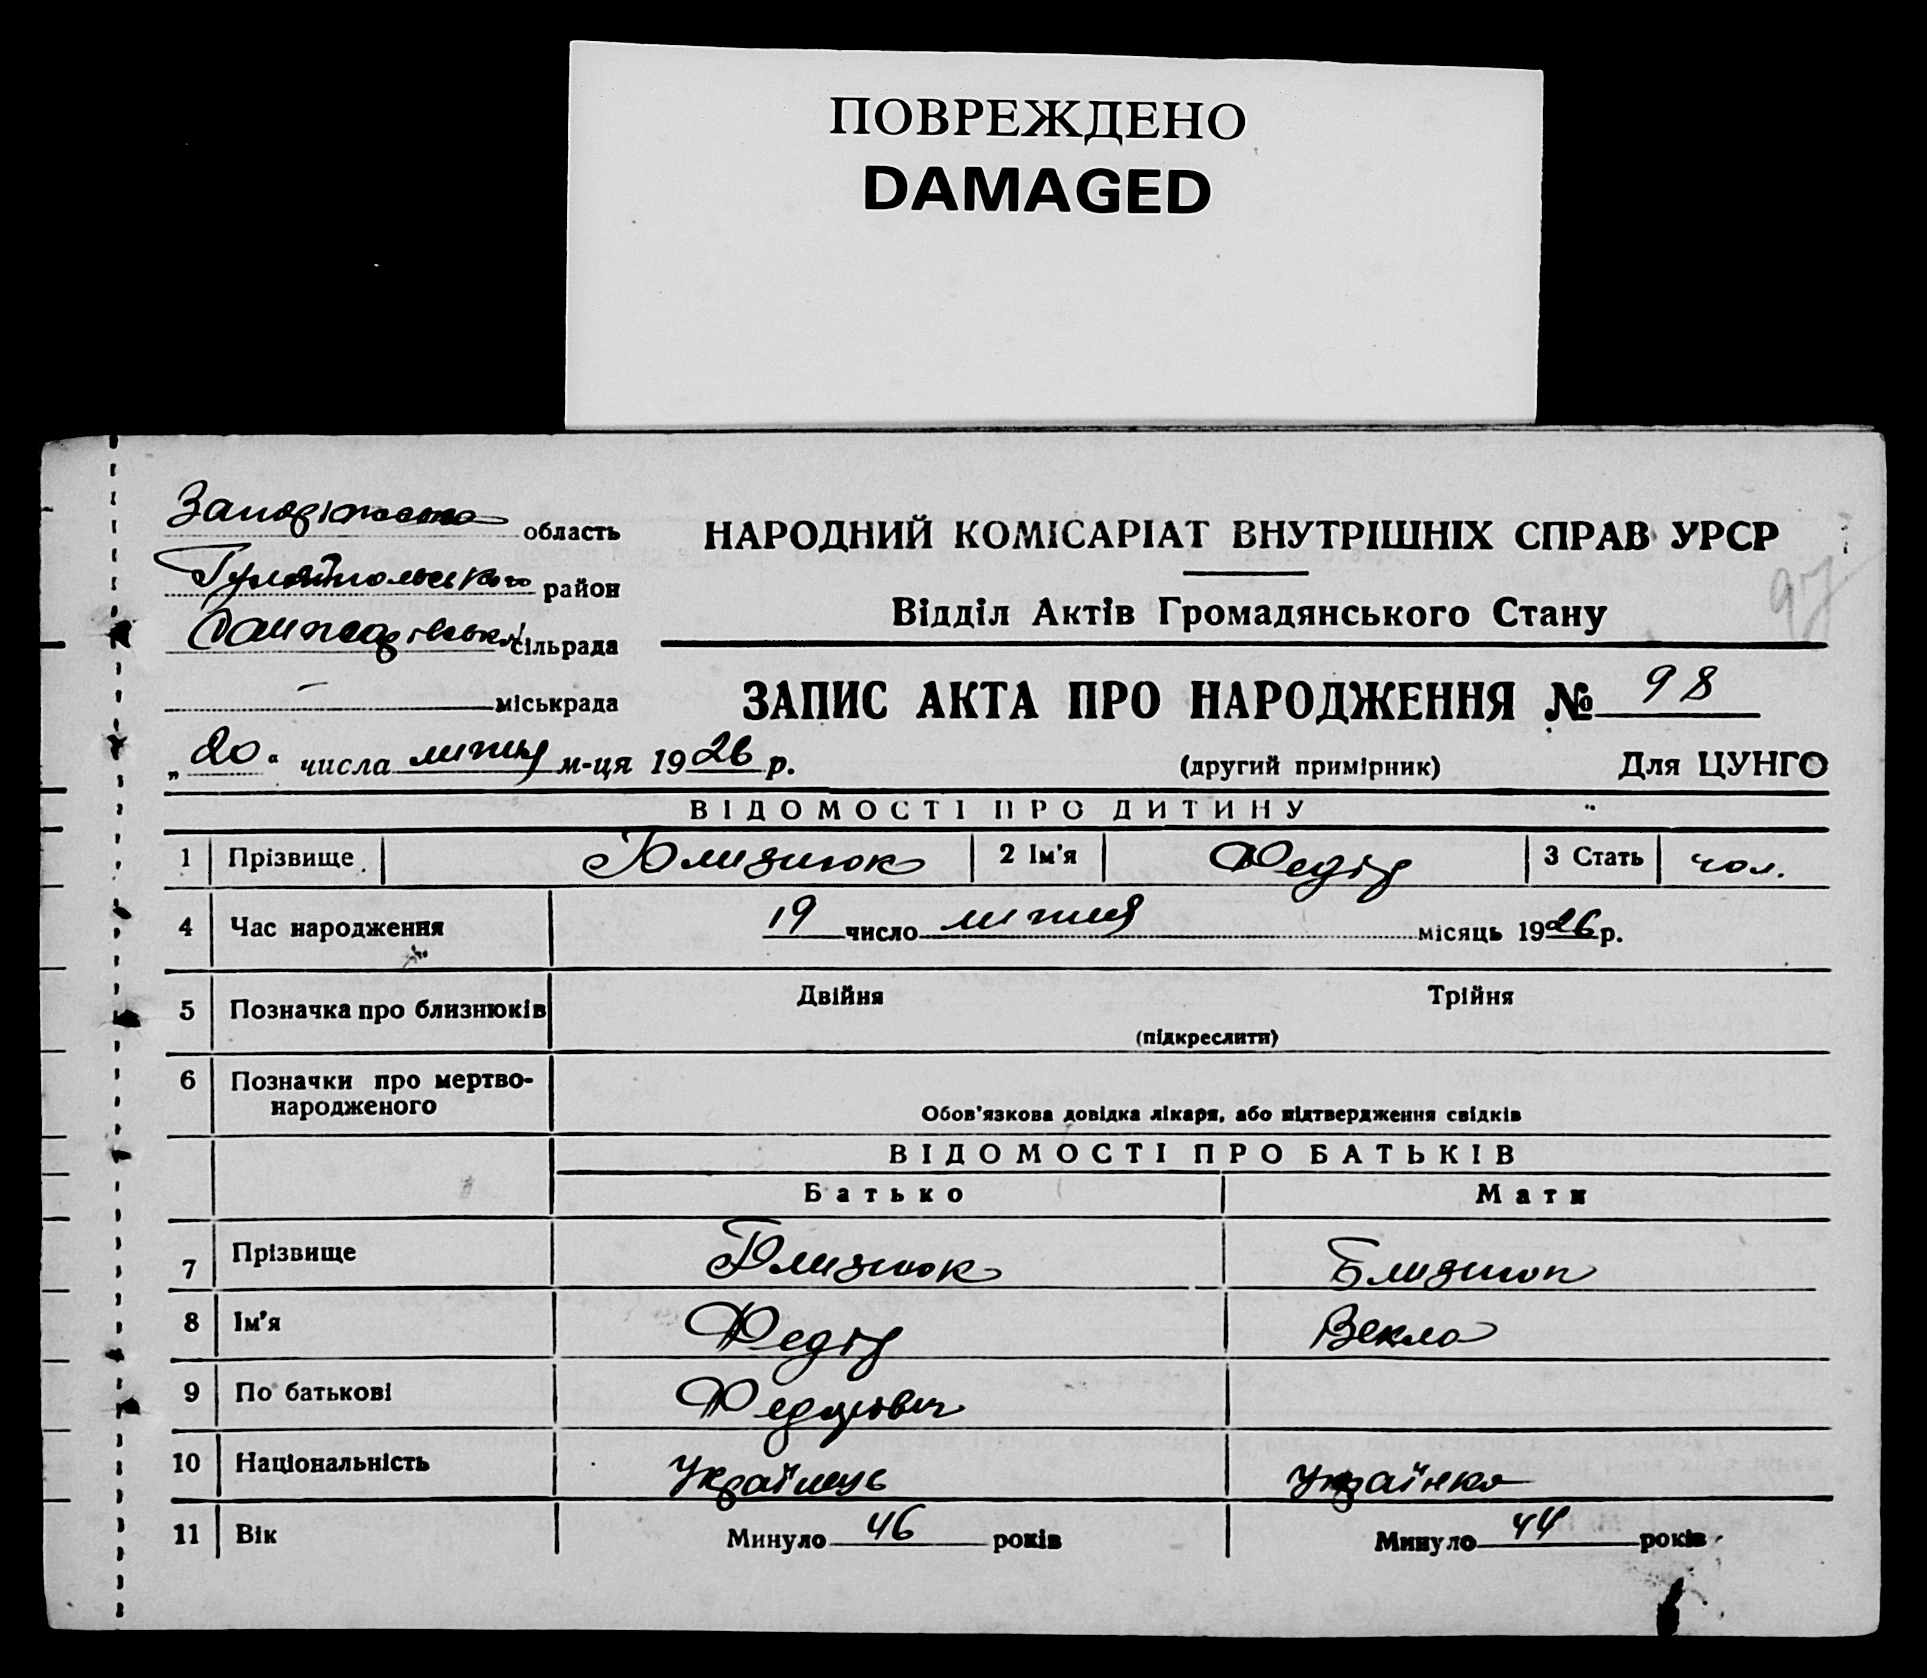 ПОВРЕЖДЕНО
DAMAGED
область
НАРОДНИЙ КОМІСАРІАТ ВНУТРІШНІХ СПРАВ УРСР
Гуляйпольського район
97
Відділ Актів Громадянського Стану
сільрада
міськрада
ЗАПИС АКТА ПРО НАРОДЖЕННЯ № 98
„20" числа липня м-ця 1926 р.
(другий примірник) Для ЦУНГО
ВІДОМОСТІ ПРО ДИТИНУ
1 Прізвище Близнюк 2 Ім'я Федір 3 Стать чол.
4 Час народження 19 число липня місяць 1926 р.
5 Позначка про близнюків Двійня Трійня
(підкреслити)
6 Позначки про мертво-
народженого
Обов'язкова довідка лікаря, або підтвердження свідків
ВІДОМОСТІ ПРО БАТЬКІВ
Батько Мати
7 Прізвище Близнюк Близнюк
8 Ім'я Федір Векла
9 По батькові Федорович
10 Національність Українець Українка
11 Вік Минуло 46 років Минуло 44 років